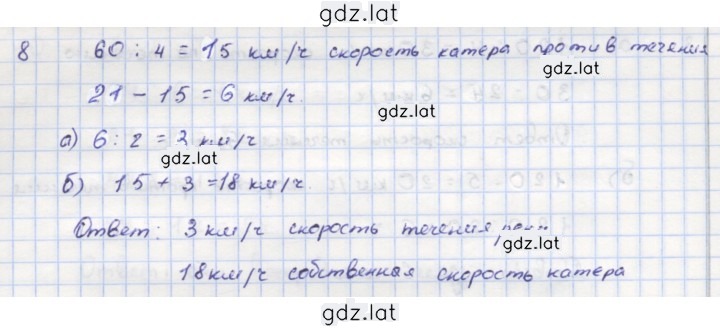 gdz.lat
8 60 : 4 = 15 км/ч скорость катера против течения
gdz.lat
21 - 15 = 6 км/ч.
gdz.lat
а) 6 : 2 = 3 км/ч
gdz.lat
б) 15 + 3 = 18 км/ч.
gdz.lat
Ответ: 3 км/ч скорость течения,
gdz.lat
18 км/ч собственная скорость катера
gdz.lat